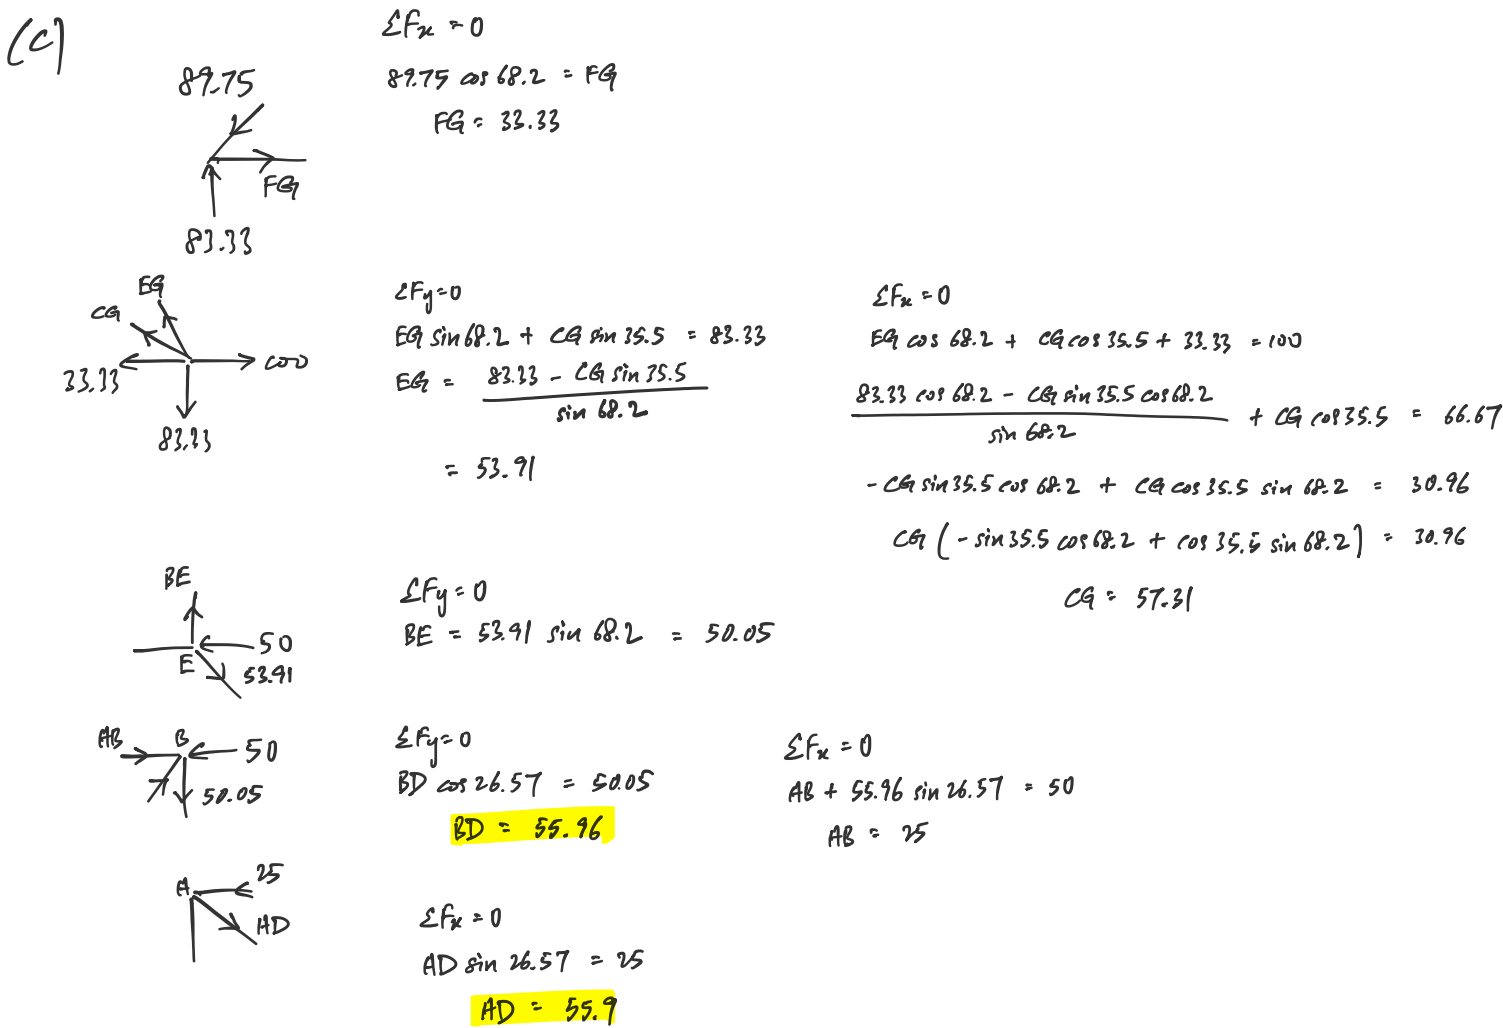 (c)
ΣFx = 0
89.75 cos 68.2 = FG
FG = 33.33
89.75
FG
83.33
EG
CG
33.33
100
83.33
ΣFy = 0
EG sin 68.2 + CG sin 35.5 = 83.33
EG = (83.33 - CG sin 35.5) / sin 68.2
= 53.91
ΣFx = 0
EG cos 68.2 + CG cos 35.5 + 33.33 = 100
(83.33 cos 68.2 - CG sin 35.5 cos 68.2) / sin 68.2 + CG cos 35.5 = 66.67
- CG sin 35.5 cos 68.2 + CG cos 35.5 sin 68.2 = 30.96
CG (- sin 35.5 cos 68.2 + cos 35.5 sin 68.2) = 30.96
CG = 57.31
BE
50
E
53.91
ΣFy = 0
BE = 53.91 sin 68.2 = 50.05
AB
B
50
50.05
ΣFy = 0
BD cos 26.57 = 50.05
BD = 55.96
ΣFx = 0
AB + 55.96 sin 26.57 = 50
AB = 25
A
25
AD
ΣFx = 0
AD sin 26.57 = 25
AD = 55.9